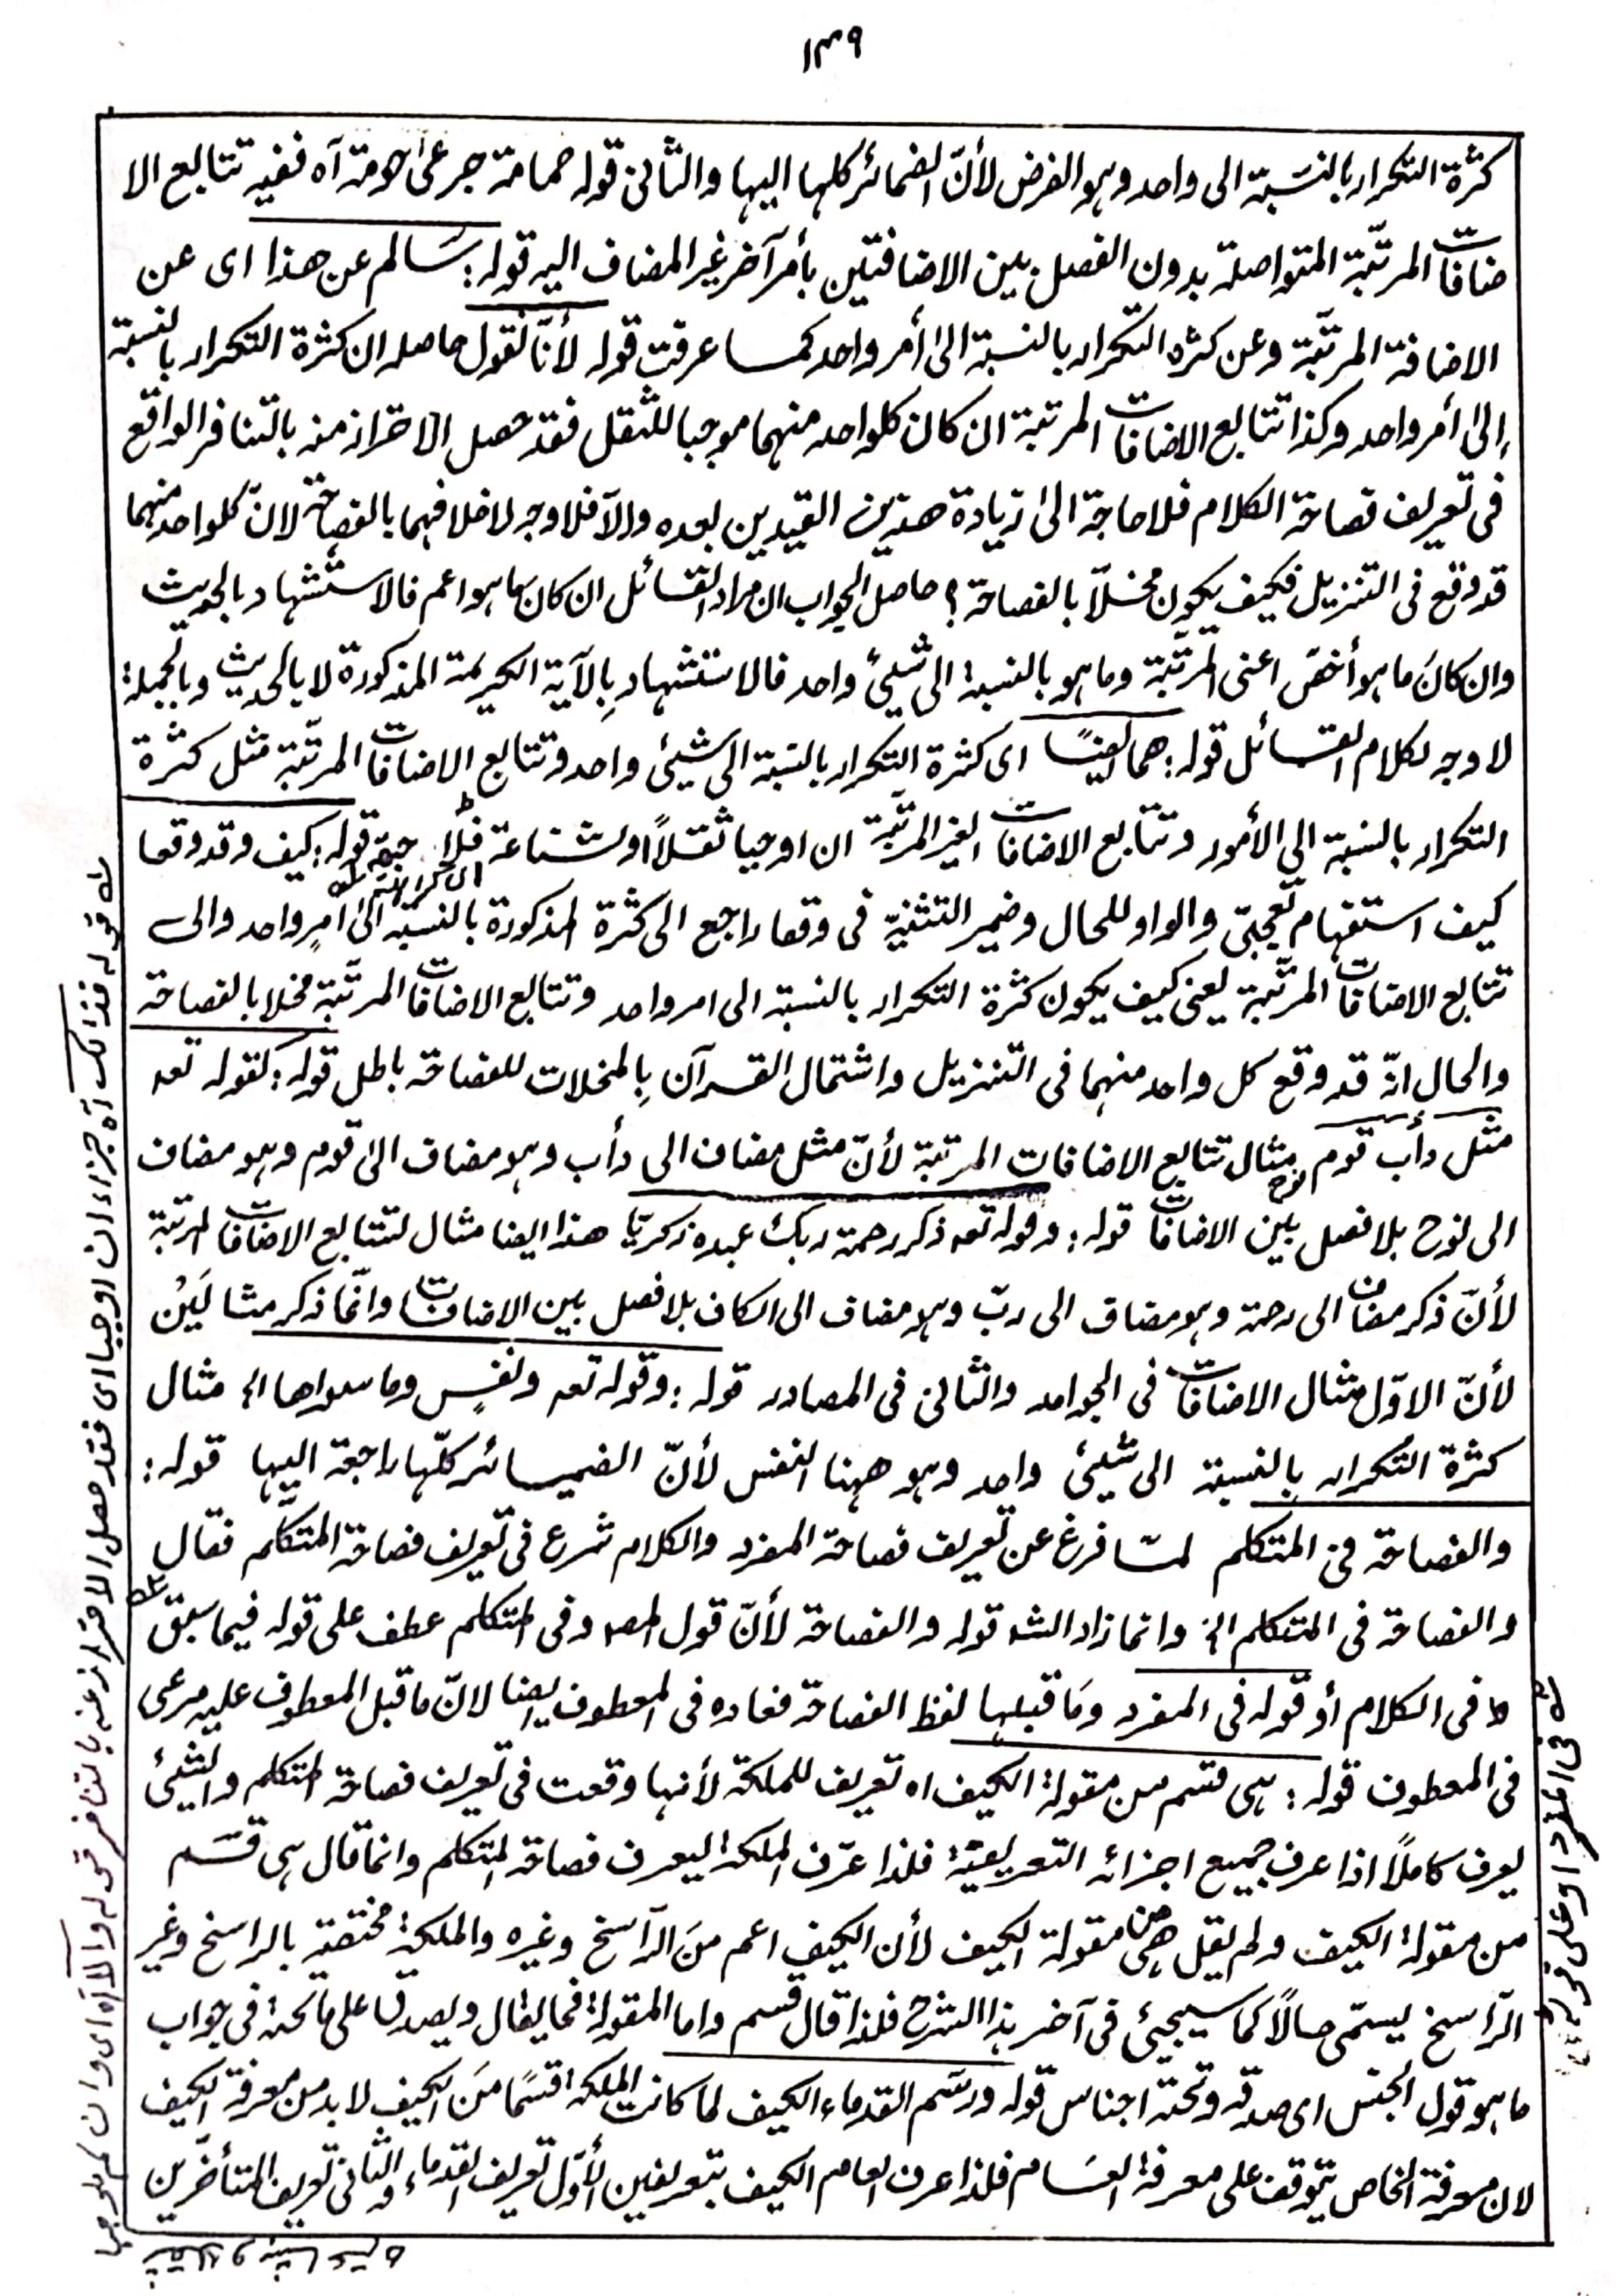 ١٣٩
كثرة التكرار بالنسبة الى واحد وهو الفرض لأنّ الضمائر كلها اليها والثانى قوله حمامة جرعىٰ حومة آه ففيه تتابع الا
ضافات المرتّبة المتواصلة بدون الفصل بين الاضافتين بأمر آخر غير المضاف اليه قوله: سالم عن هذا اى عن
الاضافة المرتّبة وعن كثره التكرار بالنسبة الىٰ أمر واحد كما عرفت قوله لأنّا نقول حاصله ان كثرة التكرار بالنسبة
إلىٰ أمر واحد وكذا تتابع الاضافات المرتبة ان كان كلواحد منهما موجبا للثقل فقد حصل الاحتراز منه بالتنافر الواقع
فى تعريف فصاحة الكلام فلا حاجة الىٰ زيادة هذين القيدين بعده والّا فلا وجه لاخلافهما بالفصاحة لانّ كلواحد منهما
قد وقع فى التنزيل فكيف يكون مخلّا بالفصاحة؟ حاصل الجواب ان مراد القائل ان كان ما هو اعم فالاستشهاد بالحديث
وان كانَ ما هو أخصّ اعنى المرتّبة وما هو بالنسبة الى شيئ واحد فالاستشهاد بِالآية الكريمة المذكورة لا بالحديث وبالجملة:
لا وجه لكلام القائل قوله: هما ايضًا اى كثرة التكرار بالنسبة الى شيئ واحد وتتابع الاضافات المرتّبة مثل كثرة
التكرار بالنسبة الى الأمور وتتابع الاضافات الغير المرتّبة ان اوجبا ثقلاً او بشاعة فلا حجة قوله: كيف وقد وقعا
كيف استفهام تعجبّى والواو للحال وضمير التثنيّة فى وقعا راجع الى كثرة المذكورة بالنسبة الىٰ امرٍ واحد والى
تتابع الاضافات المرتّبة يعنى كيف يكون كثرة التكرار بالنسبة الى امر واحد وتتابع الاضافات المرتّبة مخلا بالفصاحة
والحال انّه قد وقع كل واحد منهما فى التنزيل واشتمال القرآن بِالمخلات للفصاحة باطل قوله: كقوله تعه
مثل دأب قوم نوح مثال تتابع الاضافات المرتبة لأنّ مثل مضاف الى دأب وهو مضاف الىٰ قوم وهو مضاف
الى نوح بلا فصل بين الاضافات قوله: وقوله تعه ذكر رحمة ربك عبده زكريّا هذا ايضا مثال لتتابع الاضافات المرتبة
لأنّ ذكر مضاف الى رحمة وهو مضاف الى ربّ وهو مضاف الى الكاف بلا فصل بين الاضافات وانّما ذكر مثالَيْن
لأنّ الاوّل مثال الاضافات فى الجوامد والثانى فى المصادر قوله: وقوله تعه ونفسٍ وما سواها الخ مثال
كثرة التّكرار بِالنسبة الى شيئ واحد وهو ههنا النفس لأنّ الضمائر كلّها راجعة اليها قوله:
والفصاحة فى المتكلم لمّا فرغ عن تعريف فصاحة المفرد والكلام شرع فى تعريف فصاحة المتكلّم فقال
والفصاحة فى المتكلم الخ وانما زاد الشه قوله والفصاحة لأنّ قول المصه وفى المتكلم عطف على قوله فيما سبق
فى الكلام أو قوله فى المفرد ومَا قبلها لفظ الفصاحة فعاده فى المعطوف ايضا لانّ ما قبل المعطوف عليه مرعى
فى المعطوف قوله: هى قسم من مقولة الكيف اه تعريف للملكة لأنها وقعت فى تعريف فصاحة المتكلم والشيئ
يعرف كاملاً اذا عرف جميع اجزائه التعريفيّة فلذا عرّف الملكة ليعرف فصاحة المتكلم وانما قال هى قسَم
من مقولة الكيف ولم يقل هى من مقولة الكيف لأن الكيف اعم منَ الرّاسخ وغيره والملكة مختصة بالراسخ وغير
الرّاسخ يسمّى حالاً كما سيجيئ فى آخر هذا الشرح فلذا قال قسم واما المقولة فما يقال ويصدق على ما تحته فى جواب
ما هو قول الجنس اى صدقه وتحته اجناس قوله ورسَم القدماء الكيف لما كانت الملكة قسمًا منَ الكيف لا بد من معرفة الكيف
لان معرفة الخاص يتوقف على معرفة العام فلذا عرف العام الكيف بتعريفين الأوّل تعريف القدماء والثانى تعريف المتأخّرين
له قوله فذالك آه جزاء ان اوجبا اى فقد حصل الاحتراز عنه بالتنافر قوله والّا آه اى وان لم يوجبا